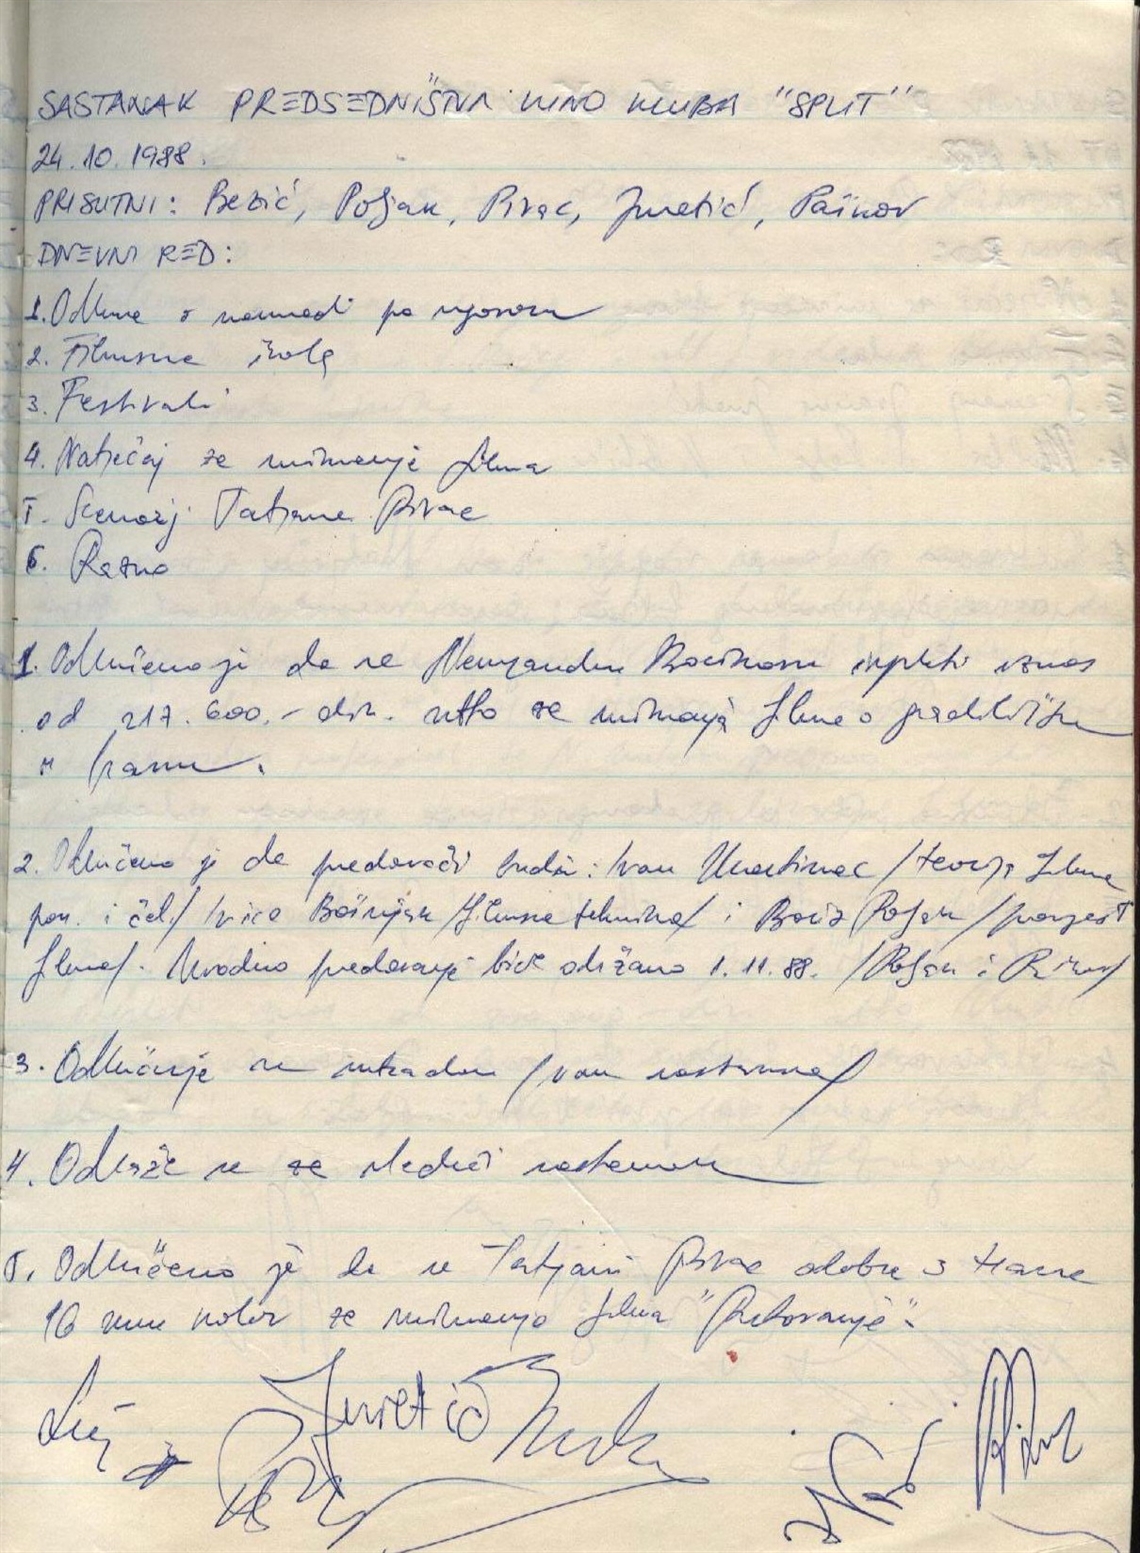 SASTANAK PREDSEDNIŠTVA KINO KLUBA "SPLIT"
24.10.1988.
PRISUTNI: Bezić, Poljak, Pivac, Juretić, Paškov
DNEVNI RED:
1. Odluka o naknadi po ugovoru
2. Filmska škola
3. Festivali
4. Natječaj za snimanje filma
5. Scenarij Tatjane Pivac
6. Razno
1. Odlučeno je da se isplati iznos
od 217.600.- din. netto za snimanje filma o gradilištu
u
2. Odlučeno je da predavači budu: Ivan Martinac /teorija filma
pon. i čet./ Ivica Bošnjak /filmska tehnika/ i Boris Poljak /povijest
filma/. Uvodno predavanje biće održano 1.11.88. /Poljak i
3. Odlučuje se /van sastanka/
4. Odlaže se za sledeći sastanak
5. Odlučeno je da se Tatjani Pivac odobre 3 trake
16 mm kolor za snimanje filma "Putovanje".
Juretić